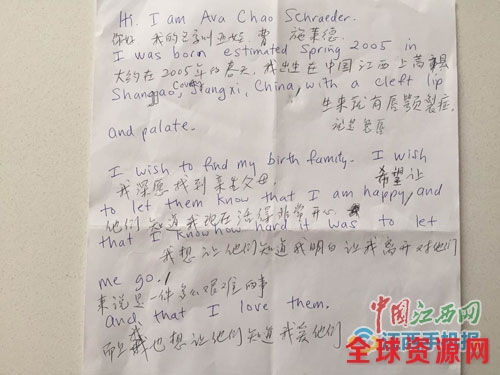 Hi. I am Ava Chao Schraeder.
你好 我的名字叫 施莱德.
I was born estimated Spring 2005 in
大约在2005年的春天, 我出生在中国江西上高县
County
Shanggao, Jiangxi, China, with a cleft lip
生来就有唇颚裂症.
and palate.
I wish to find my birth family. I wish
我深愿找到亲生父母. 希望让
to let them know that I am happy, and
他们知道我现在活得非常开心
that I know how hard it was to let
我想让他们知道我明白让我离开对他们
me go,
来说是一件多么艰难的事
and that I love them.
而且我也想让他们知道我爱他们
中国江西网
江西手机报
全球资源网